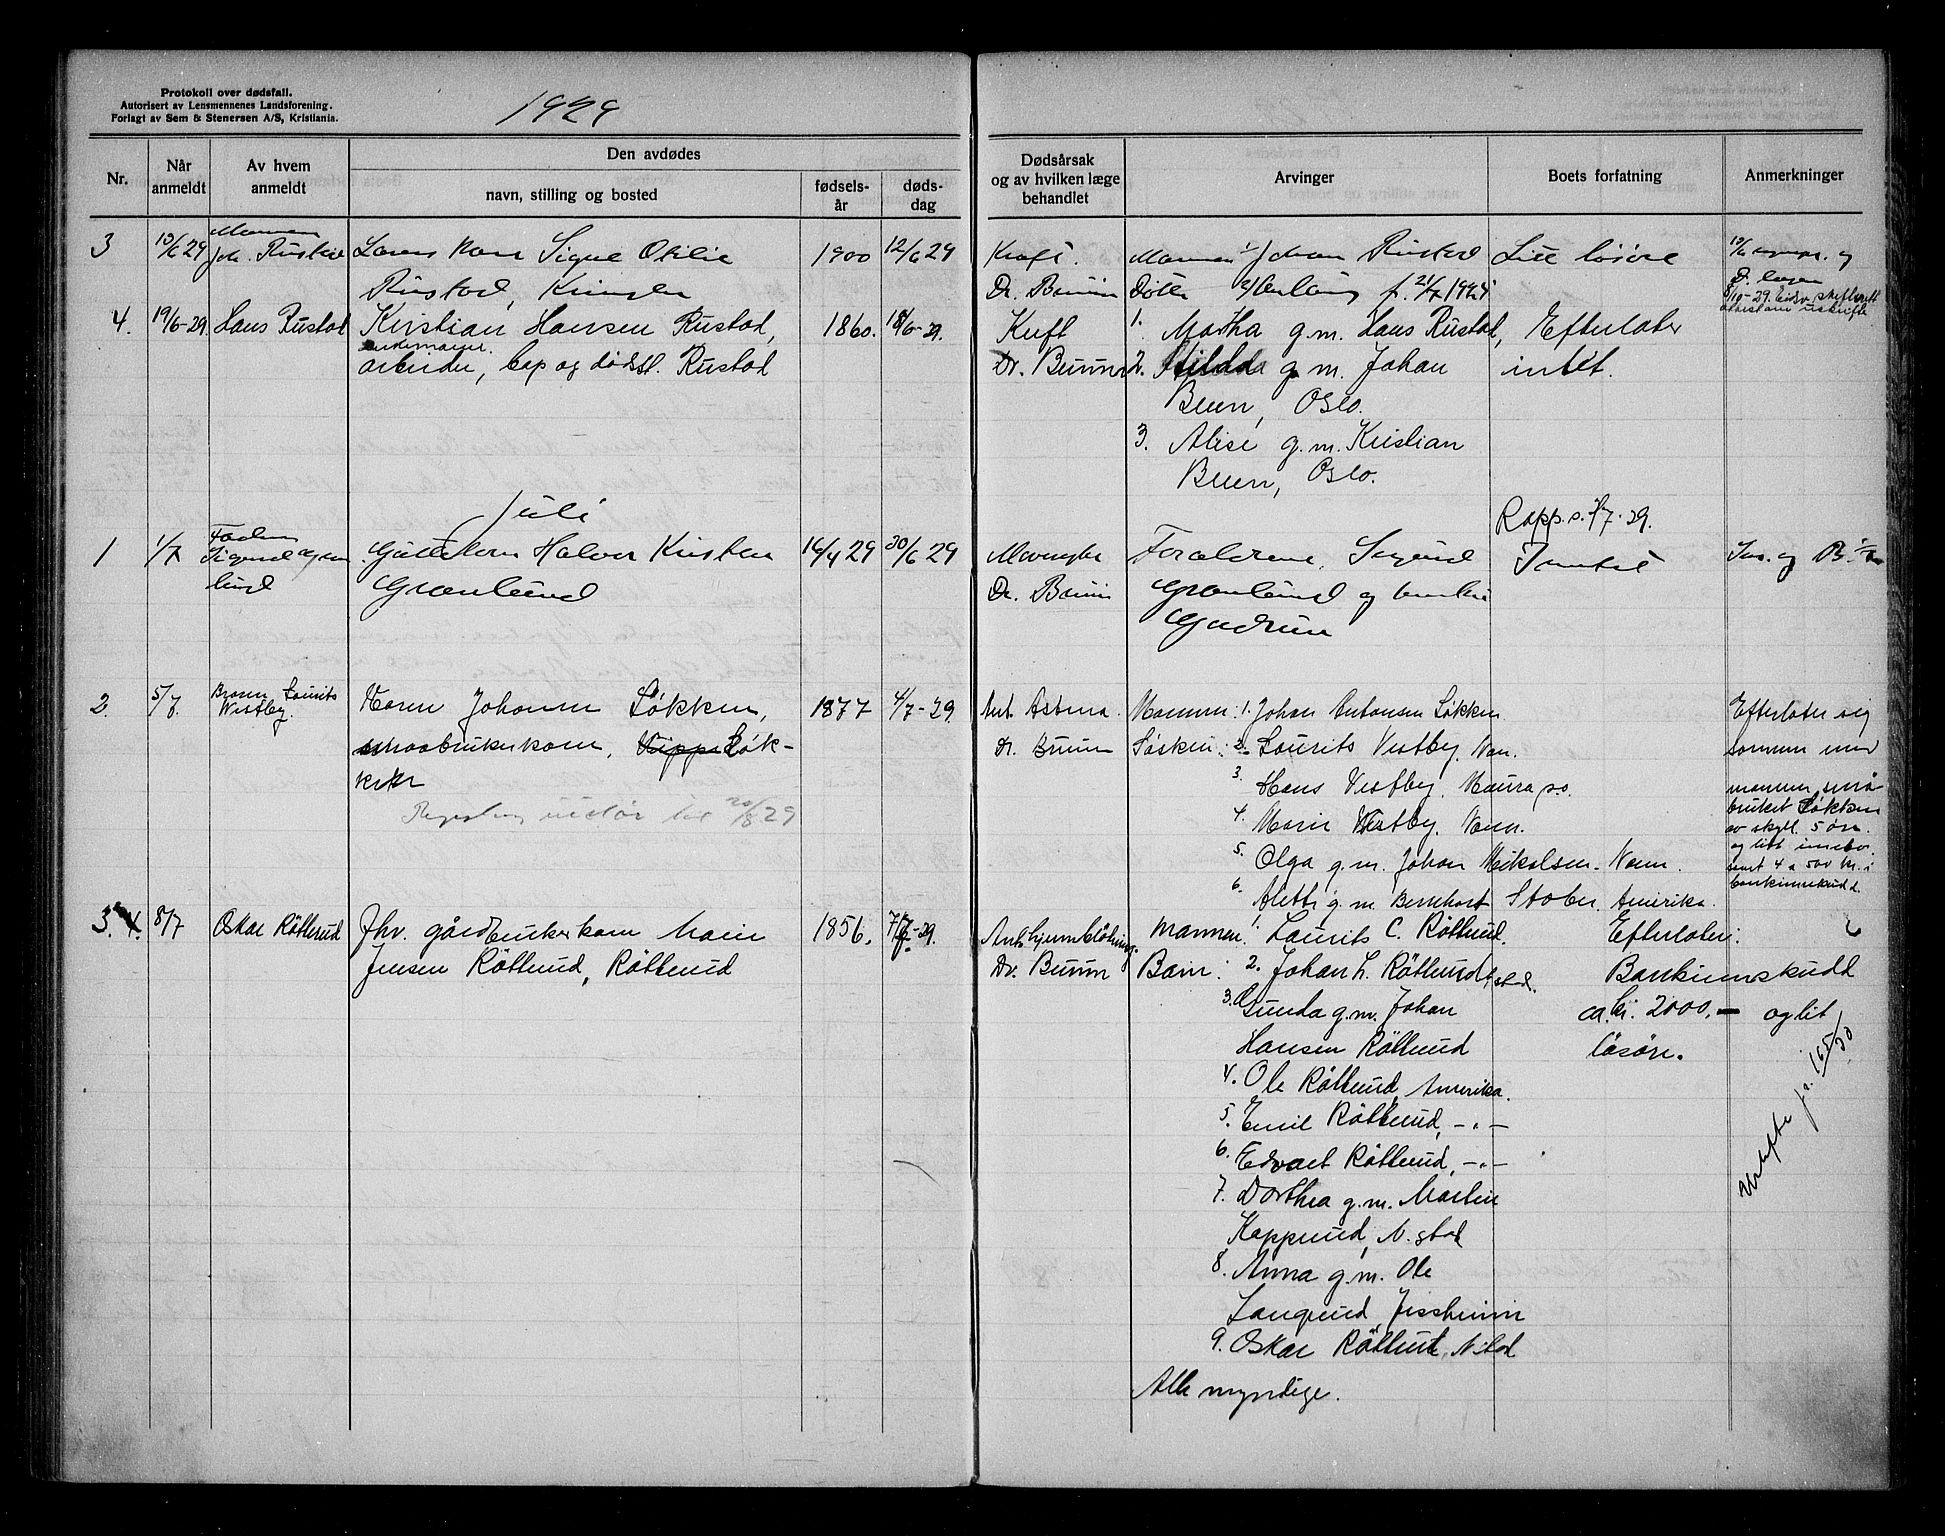 Protokoll over dødsfall.
Autorisert av Lensmennenes Landsforening.
Forlagt av Sem & Stenersen A/S, Kristiania.
1929
Nr.
Når anmeldt
Av hvem anmeldt
Den avdødes
navn, stilling og bosted
fødsels-år
døds-dag
Dødsårsak og av hvilken læge behandlet
Arvinger
Boets forfatning
Anmerkninger
3
13/6 29
Mannen
Joh. Rustad
Rustad,
1900
12/6 29
Kræft.
Dr. Bruun
Mannen 1/ Johan Rustad
Litt løsøre
4.
19/6-29.
Hans Rustad
Kristian Hansen Rustad,
arbeider, bop og dødsst. Rustad
1860.
18/6-29.
Kreft
Dr. Bruun
1. Martha g.m. Hans Rustad,
2. Hilda g.m. Johan
Buen, Oslo.
3. Alise g.m. Kristian
Buen, Oslo.
Efterlater
intet.
Juli
1
1/7
Faderen
Sigurd Grøn
lund
Gutten Halvor Kristen
Grønlund
14/4 29
30/6 29
Dr. Bruun
Forældrene, Sigurd
Grønlund og hustru
Gudrun
Rapp. s. 1/7-29.
Intet
2.
5/7.
Broren Laurits
Westby.
Karen Johanne Løkken,
småbrukerkone, Løk-
ken
20/8 29
1877
4/7-29.
Ant. Astma.
Dr. Bruun
Mannen: 1. Johan Antonsen Løkken
Søsken: 2. Laurits Vestby, Nan.
3. Hans Vestby, Maura p.o.
4. Marie Vestby, Nan.
5. Olga g.m. Johan Mikalsen. Nan.
6. Aletti g.m. Bernhart Staber, Amerika.
Efterlater sig
sammen med
mannen små
bruket Løkken
av skyll. 5 øre.
og litt innebo
samt 4 a 500 kr. i
bankinnskudd.
3.
8/7
Oskar Røtterud
Fhv. gårdbrukerkone Marie
Jensen Røtterud, Røtterud
1856.
7/7-29.
Ant. hjerneblødning.
Dr. Bruun
Mannen: 1. Laurits C. Røtterud.
Barn: 2. Johan L. Røtterud, N.stad.
3. Gunda g.m. Johan
Hansen Røtterud
4. Ole Røtterud, Amerika.
5. Emil Røtterud, -"-
6. Edvart Røtterud, -"-
7. Dorthea g.m. Martin
Kopperud, N.stad
8. Anna g.m. Ole
Langerud, Jessheim
9. Oskar Røtterud, N.stad
Alle myndige.
Efterlater:
Bankinnskudd
ca. kr. 2000,- og lit
løsøre.